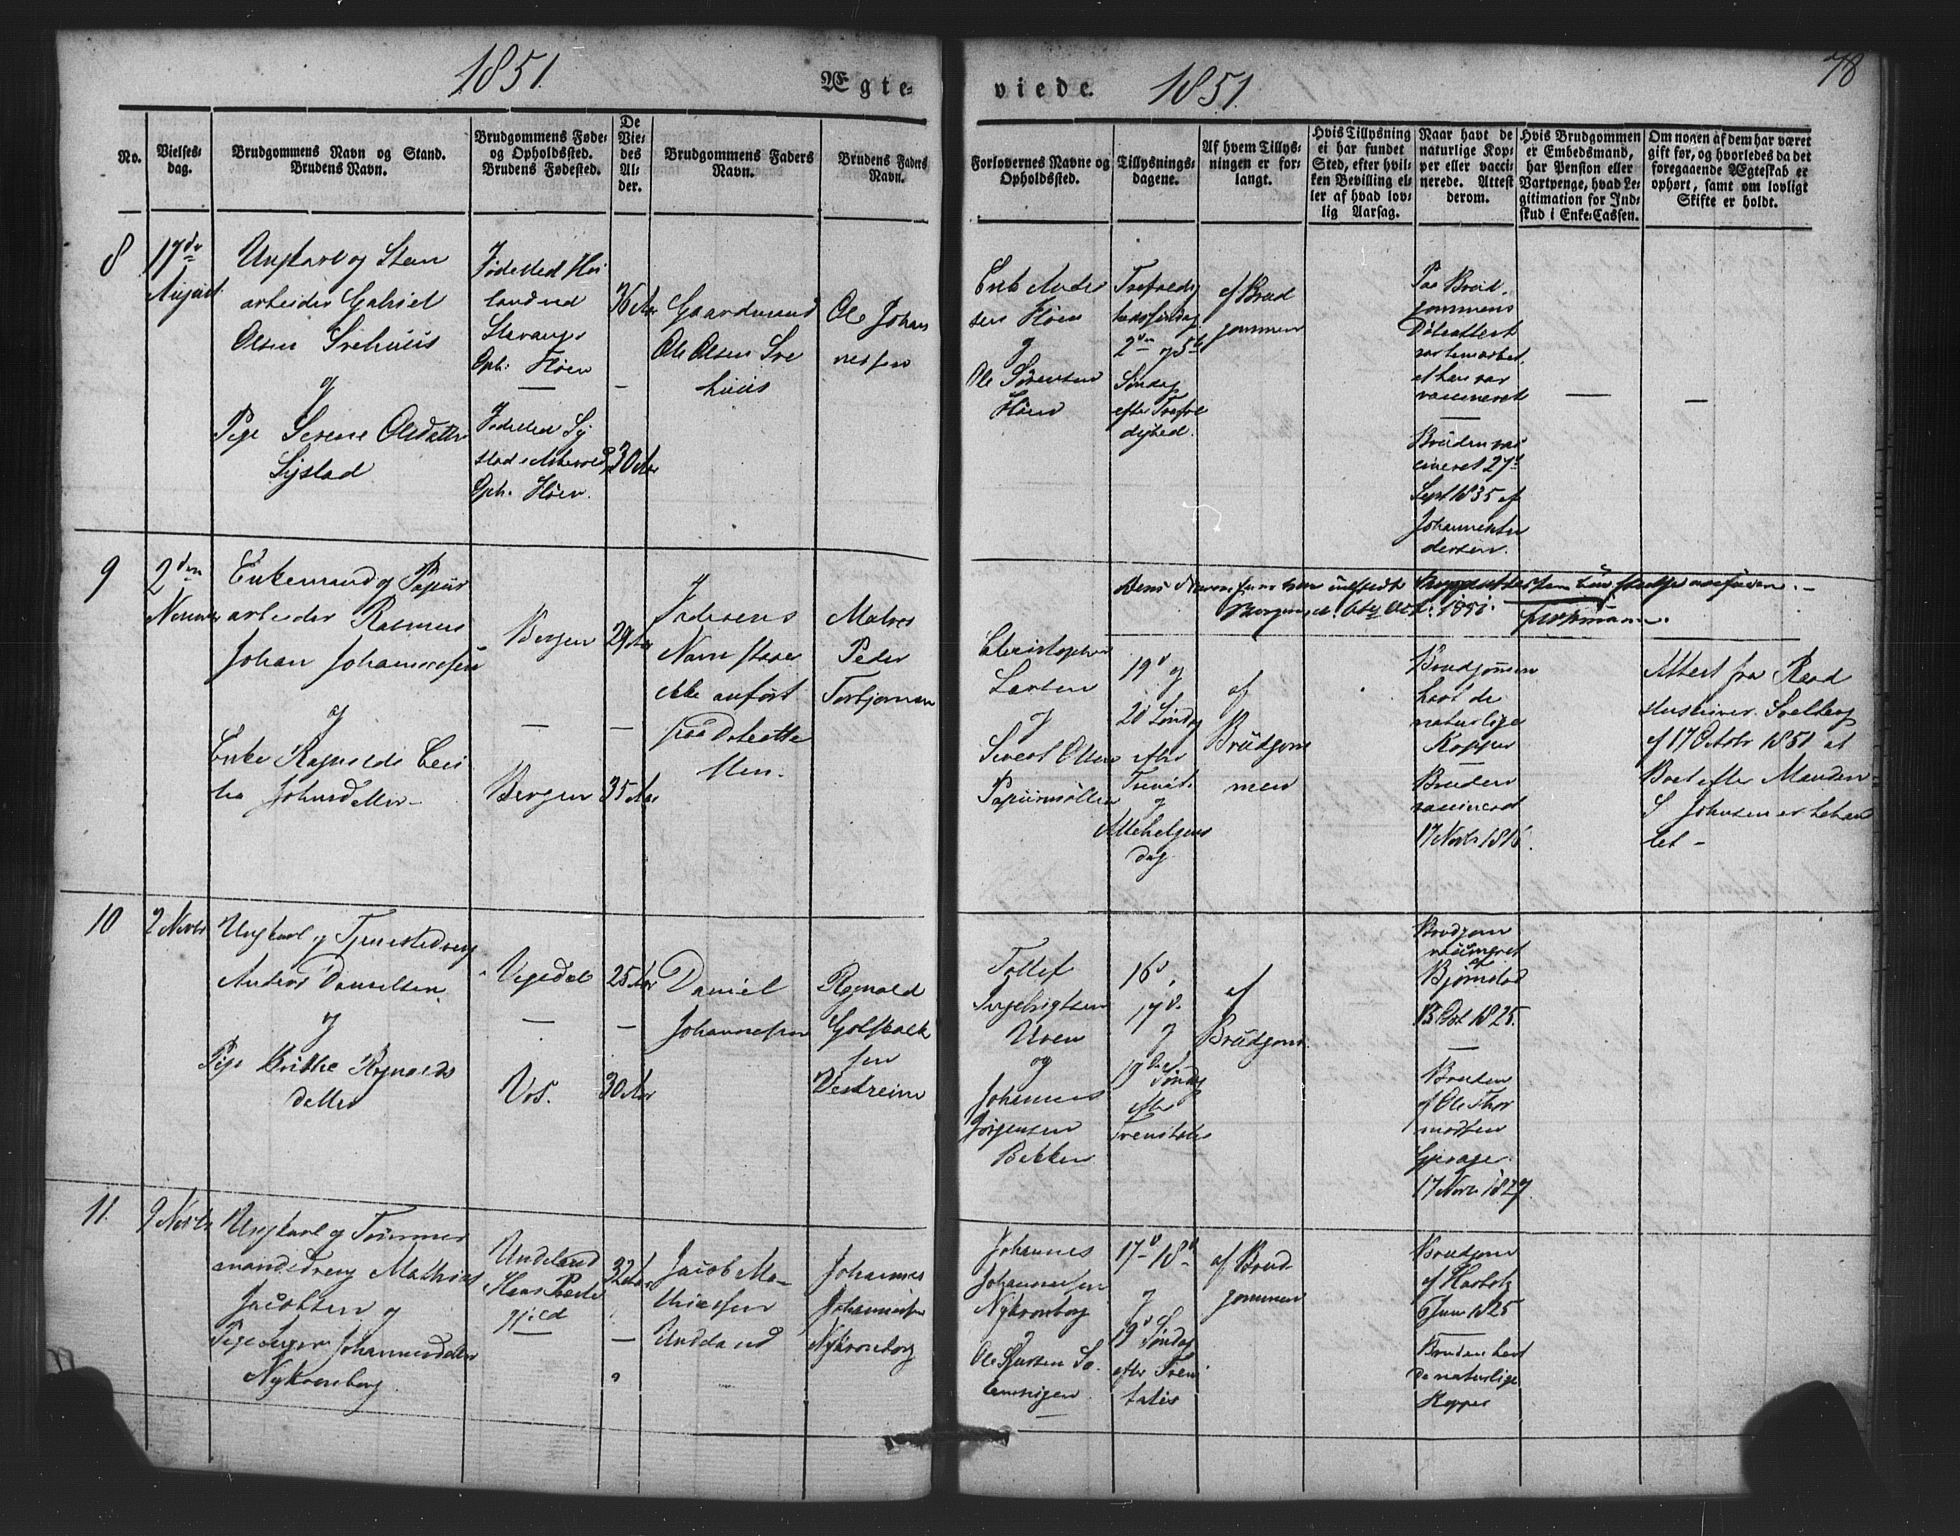 1851.
Ægte-
viede.
1851.
78
No.
Vielses-
dag.
Brudgommens Navn og Stand.
Brudens Navn.
Brudgommens Føde-
og Opholdssted.
Brudens Fødested.
De
Vie-
des
Al-
der.
Brudgommens Faders
Navn.
Brudens Faders
Navn.
Forlovernes Navne og
Opholdssted.
Tillysnings-
dagene.
Af hvem Tillys-
ningen er for-
langt.
Hvis Tillysning
ei har fundet
Sted, efter hvil-
ken Bevilling el-
ler af hvad lov-
lig Aarsag.
Naar havt de
naturlige Kop-
per eller vacci-
nerede. Attest
derom.
Hvis Brudgommen
er Embedsmand,
har Pension eller
Vartpenge, hvad Le-
gitimation for Ind-
skud i Enke-Cassen.
Om nogen af dem har været
gift før, og hvorledes da det
foregaaende Ægteskab er
ophørt, samt om lovligt
Skifte er holdt.
8
17de
August
Ungkarl og Sten
arbeider Gabriel
Olsen Svehuus
og
Pige Serene Olsdatter
Systad
Fødested Høi
land ved
Stavanger
Oph: Fløen
—
Fødested Sy
stad i Askevold
Oph. Fløen.
36 Aar
—
30 Aar
Gaardmand
Ole Olsen Sve
huus
Ole Johan
nessen
Erik Ander
sen Fløen
og
Ole Sørensen
Fløen
Trefoldig
hedssøndag
2den og 5te
Søndag
efter Trefol
dighed.
af Brud
gommen
Paa Brud-
gommens
Døbeattest
var bemærket
at han var
vaccineret
—
Bruden vac
cineret 27de
Sept 1835 af
Johannes An
dersen.
—
—
9
2den
November
Enkemand og Papiir
arbeider Rasmus
Johan Johannessen
og
Enke Ragnilde Ceci
lia Johnsdatter
Bergen
—
Bergen
29 Aar
—
35 Aar
Faderens
Navn staaer
ikke anført
paa Døbeatte
sten.
Matros
Peder
Torbjørnsen
Christopher
Larsen
og
Sivert Olsen
Papiirmøllen
19de og
20 Søndag
efter
Trinit:
og
Allehelgens
dag
af
Brudgom
men
Brudgommen
havt de
naturlige
Kopper
Bruden
vaccineret
17 Novbr 1816.
Attest fra Raad
stueskriver
af 17 Octobr 1851 at
Boet efter Manden
S Johnsen er behand
let —
10
2 Novbr
Ungkarl og Tjenestedreng
Anders Danielsen
og
Pige Brithe Rognalds
datter
Vigedal
—
Vos.
25 Aar
—
30 Aar
Daniel
Johannessen
Rognald
Gotskalk
sen
Vestreim
Tollef
Ingebrigtsen
Uren
og
Johannes
Jørgensen
Bekken
16de,
17de
og
19de
Søndag
efter
Trinitatis
af
Brudgom.
Brudgom
vaccineret
af
Bjørnstad
13 Oct 1825.
—
Bruden
af Ole Thor
modsen
Gjerager
17 Nov: 1827.
11.
9 Novbr
Ungkarl og Tømmer
mandsdreng Mathias
Jacobsen og
Pige Inger Johannesdatter
Nykronborg
Undeland
Haas Præste
gjeld
—
32 Aar
—
Jacob Ma-
thiassen
Undeland
Johannes
Johannessen
Nykronborg
Johannes
Johannessen
Nykronborg
og
Ole Knutsen
17de 18de
og
19de Søndag
efter Trini
tatis
af Brud-
gommen
Brudgom
af Harboe
6 Juni 1825
—
Bruden havt
de naturlige
Kopper